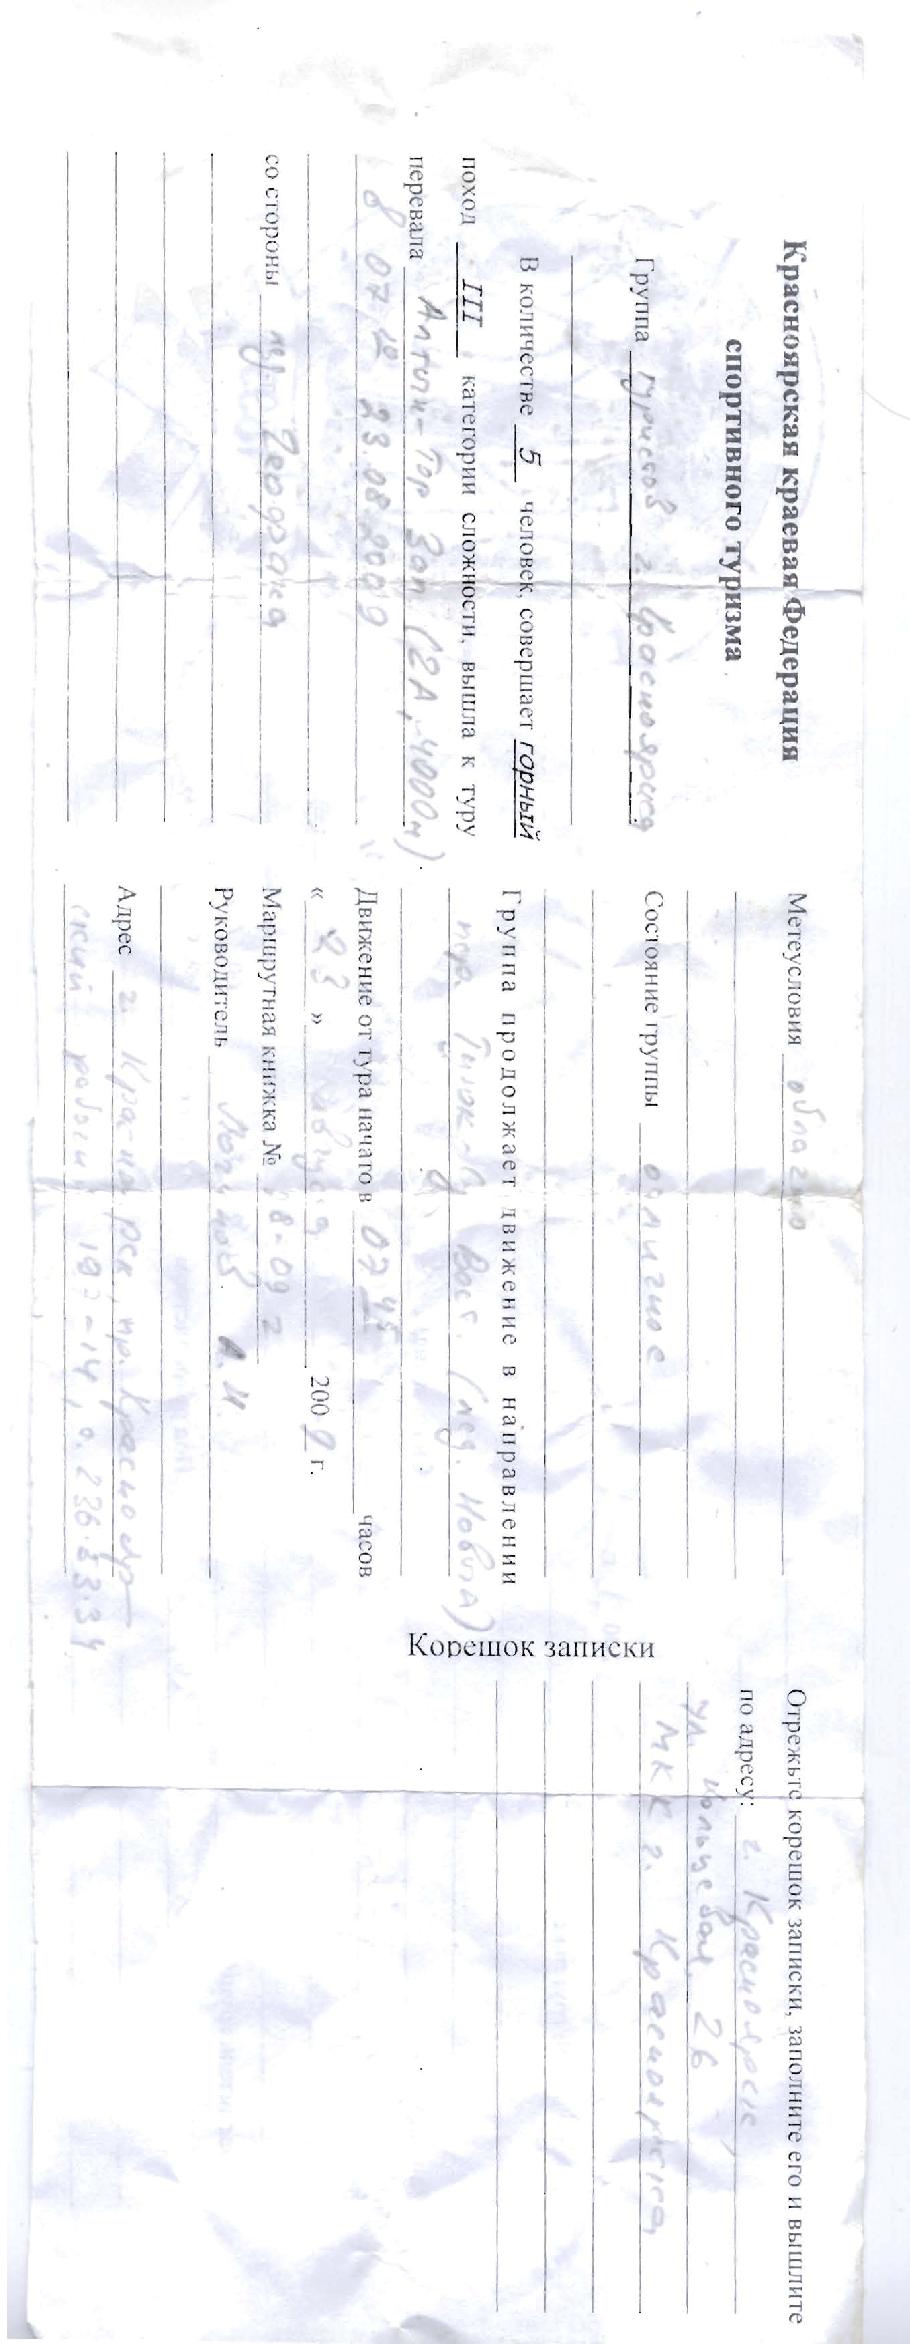 Красноярская краевая Федерация
спортивного туризма
Группа туристов г. Красноярска
В количестве 5 человек, совершает горный
поход III категории сложности, вышла к туру
перевала Алтын-Тор Зап (2А, 4000м)
в 07 23.08.2009
со стороны
Метеусловия облачно
Состояние группы отличное
Группа продолжает движение в направлении
пер. Вост. (лед. )
Движение от тура начато в 07 45 часов
« 23 » августа 2009 г.
Маршрутная книжка № 8-09
Руководитель А.И.
Адрес г. Кра-но рск, пр. Краснояр
ский рабочий - 14, 236.33.34
Корешок записки
Отрежьте корешок записки, заполните его и вышлите
по адресу: г. Красноярск,
ул. Кольцевая, 26
МКК г. Красноярска